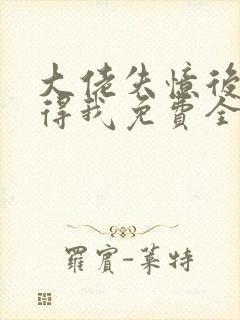 大佬失憶後
得我免費全
羅賓-萊特